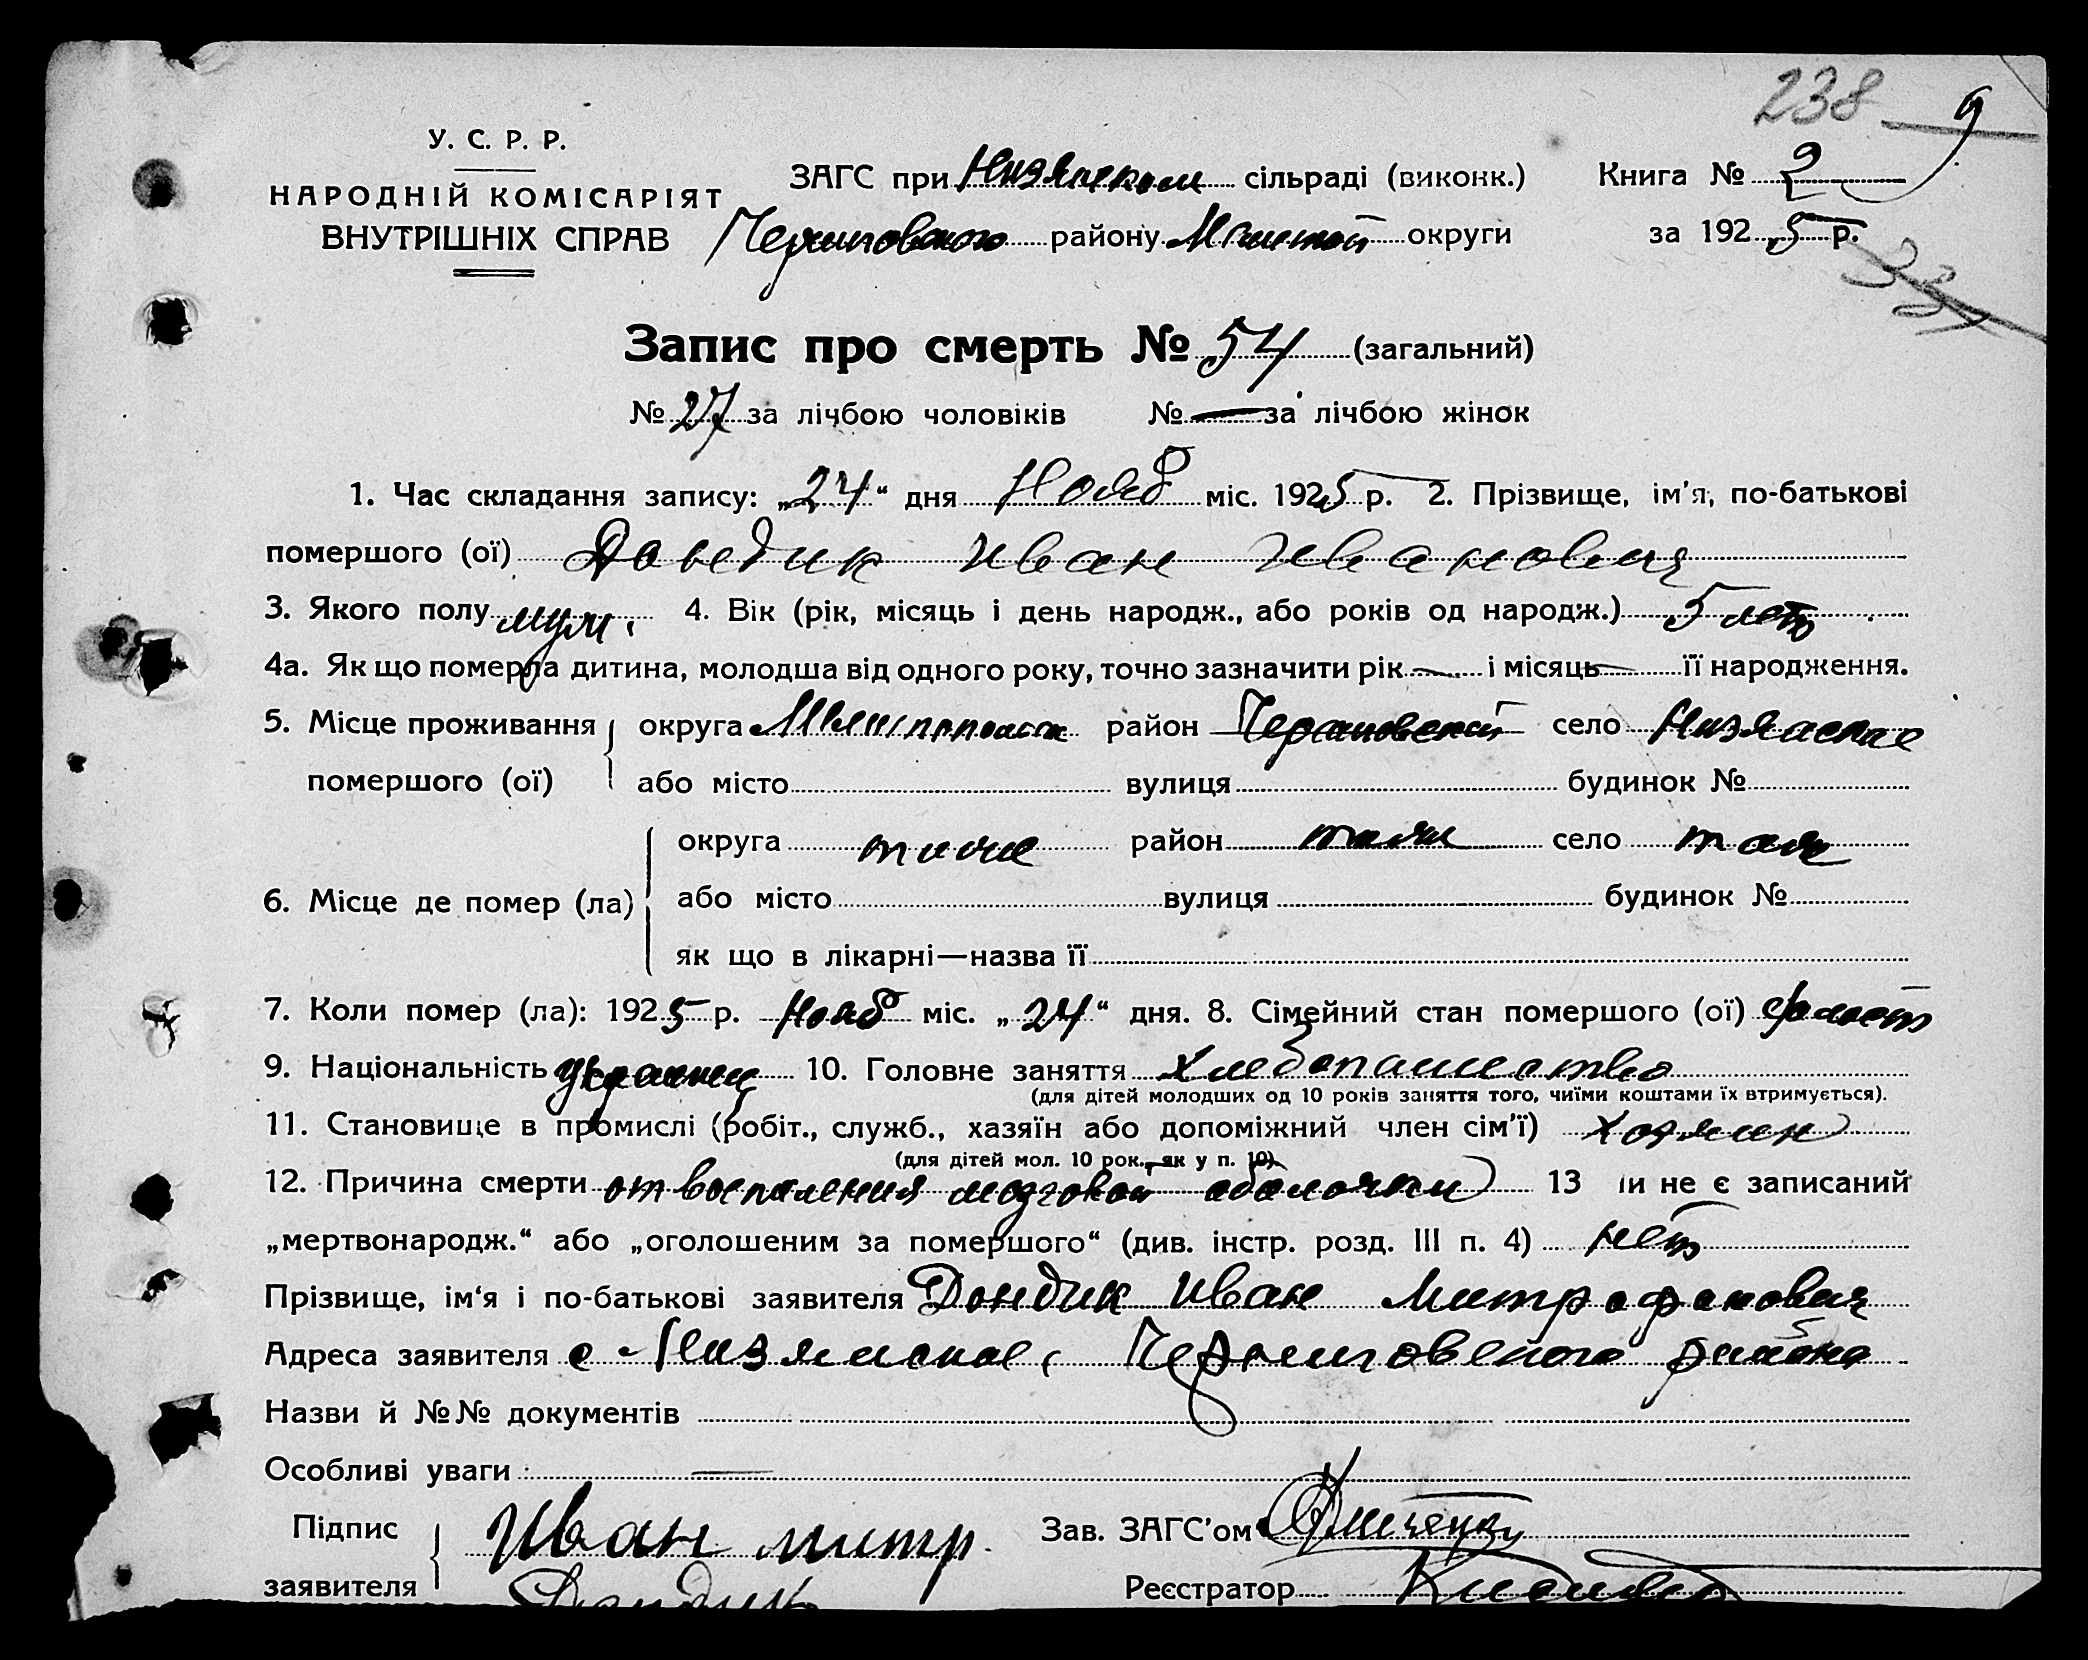 238 9
У. С. Р. Р.
НАРОДНІЙ КОМІСАРІЯТ
ВНУТРІШНІХ СПРАВ
ЗАГС при сільраді (виконк.) Книга № 2
району округи за 1925 р.
33
Запис про смерть № 54 (загальний)
№ 27 за лічбою чоловіків № — за лічбою жінок
1. Час складання запису: „24“ дня Нояб міс. 1925 р. 2. Прізвище, ім'я, по-батькові
помершого (ої) Дондик Иван Иванович
3. Якого полу муж. 4. Вік (рік, місяць і день народж., або років од народж.) 5 лет
4а. Як що померла дитина, молодша від одного року, точно зазначити рік — і місяць — її народження.
5. Місце проживання округа район Черниговский село
помершого (ої) або місто вулиця будинок №
6. Місце де помер (ла) округа тоже район село там
або місто вулиця будинок №
як що в лікарні—назва її
7. Коли помер (ла): 1925 р. Нояб міс. „24“ дня. 8. Сімейний стан помершого (ої) холост
9. Національність украинец 10. Головне заняття хлебопашество
(для дітей молодших од 10 років заняття того, чиїми коштами їх втримується).
11. Становище в промислі (робіт., служб., хазяїн або допоміжний член сім'ї) хозяин
(для дітей мол. 10 рок., як у п. 10)
12. Причина смерти от воспаления мозговой оболочки 13 чи не є записаний
„мертвонародж.“ або „оголошеним за помершого“ (див. інстр. розд. III п. 4) нет
Прізвище, ім'я і по-батькові заявителя Дондик Иван Митрофанович
Адреса заявителя с Черниговского района
Назви й №№ документів
Особливі уваги —
Підпис заявителя Иван митр Дондик
Зав. ЗАГС'ом
Реєстратор